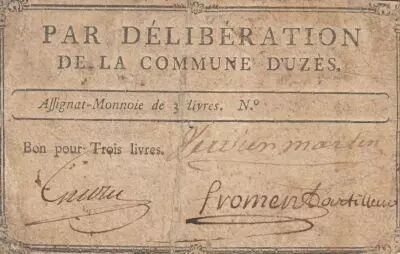 PAR DÉLIBÉRATION
DE LA COMMUNE D'UZÈS.
Aſſignat-Monnoie de 3 livres. N.º
Bon pour Trois livres. martin
Froment